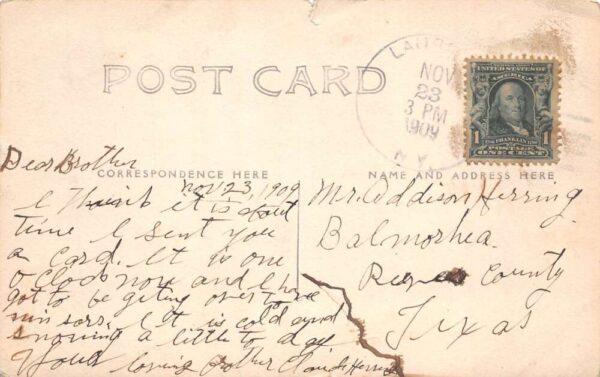 POST CARD
NOV
23
3 PM
1909
N.Y.
UNITED STATES OF
AMERICA
1 1
FRANKLIN
POSTAGE
ONE CENT
CORRESPONDENCE HERE
NAME AND ADDRESS HERE
Dear Brother
Nov 23, 1909
I think it is about
time I sent you
a card. It is one
o clock now and I have
got to be geting over to
sors. It is cold and
snowing a little to day
Your loving Brother Claude Herring
Mr. Addison Herring
Balmorhea
County
Texas